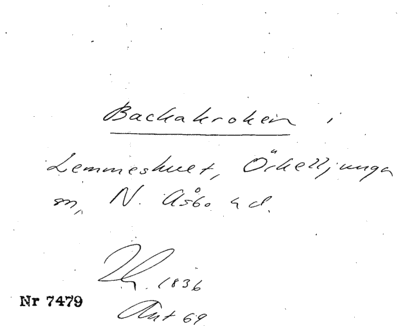 Backakroken i
Lemmeshult, Örkelljunga
sn, N. Åsbo hd.
1836
Nr 7479
Ant 69